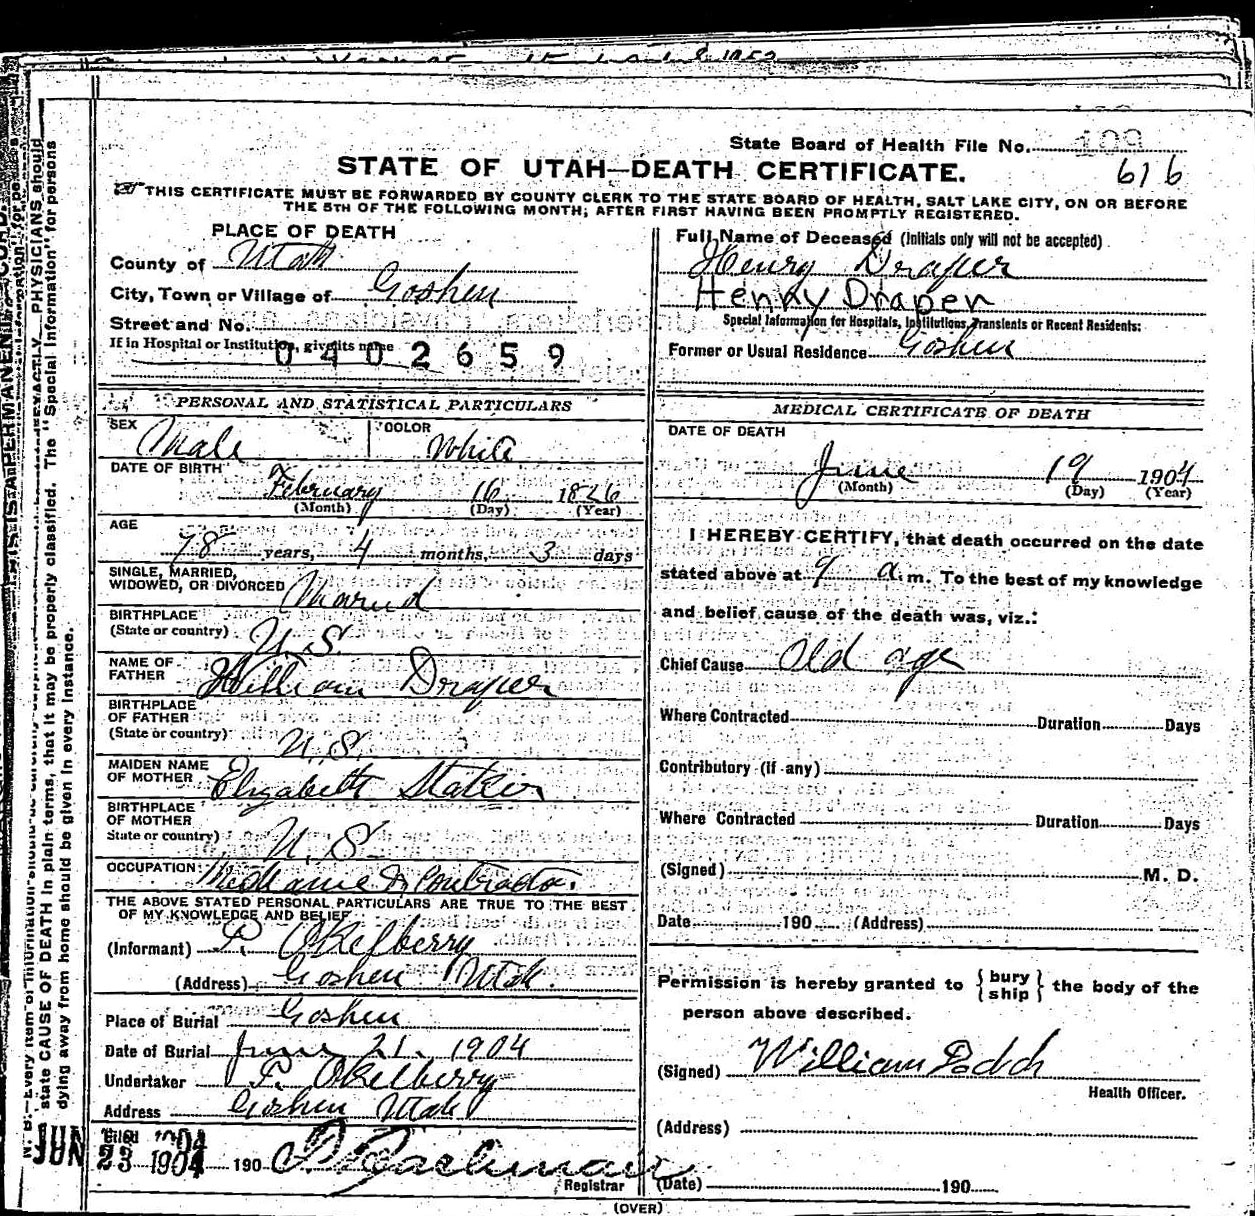 State Board of Health File No. 109
616
STATE OF UTAH—DEATH CERTIFICATE.
THIS CERTIFICATE MUST BE FORWARDED BY COUNTY CLERK TO THE STATE BOARD OF HEALTH, SALT LAKE CITY, ON OR BEFORE
THE 5TH OF THE FOLLOWING MONTH; AFTER FIRST HAVING BEEN PROMPTLY REGISTERED.
PLACE OF DEATH
County of Utah
City, Town or Village of Goshen
Street and No.
If in Hospital or Institution, give its name
0402659
Full Name of Deceased (Initials only will not be accepted)
Henry Draper
Henry Draper
Special Information for Hospitals, Institutions, Transients or Recent Residents:
Former or Usual Residence Goshen
PERSONAL AND STATISTICAL PARTICULARS
SEX Male COLOR White
DATE OF BIRTH
February 16 1826
(Month) (Day) (Year)
AGE
78 years, 4 months, 3 days
SINGLE, MARRIED,
WIDOWED, OR DIVORCED Maried
BIRTHPLACE
(State or country) U. S.
NAME OF
FATHER William Draper
BIRTHPLACE
OF FATHER
(State or country) U. S.
MAIDEN NAME
OF MOTHER Elizabeth
BIRTHPLACE
OF MOTHER
State or country) U. S.
OCCUPATION Mechanic & Contractor.
THE ABOVE STATED PERSONAL PARTICULARS ARE TRUE TO THE BEST
OF MY KNOWLEDGE AND BELIEF
(Informant) P. Okelberry
(Address) Goshen Utah.
Place of Burial Goshen
Date of Burial June 21. 1904
Undertaker P. Okelberry
Address Goshen Utah
Filed 1904
JUN 23 1904 190
Registrar
MEDICAL CERTIFICATE OF DEATH
DATE OF DEATH
June 19 1904
(Month) (Day) (Year)
I HEREBY CERTIFY, that death occurred on the date
stated above at 9 a.m. To the best of my knowledge
and belief cause of the death was, viz.:
Chief Cause Old age
Where Contracted Duration Days
Contributory (if any)
Where Contracted Duration Days
(Signed) M. D.
Date 190 (Address)
Permission is hereby granted to { bury ship } the body of the
person above described.
(Signed) William
Health Officer.
(Address)
(Date) 190
(OVER)
state CAUSE OF DEATH in plain terms, that it may be properly classified. The "Special Information" for persons
dying away from home should be given in every instance.